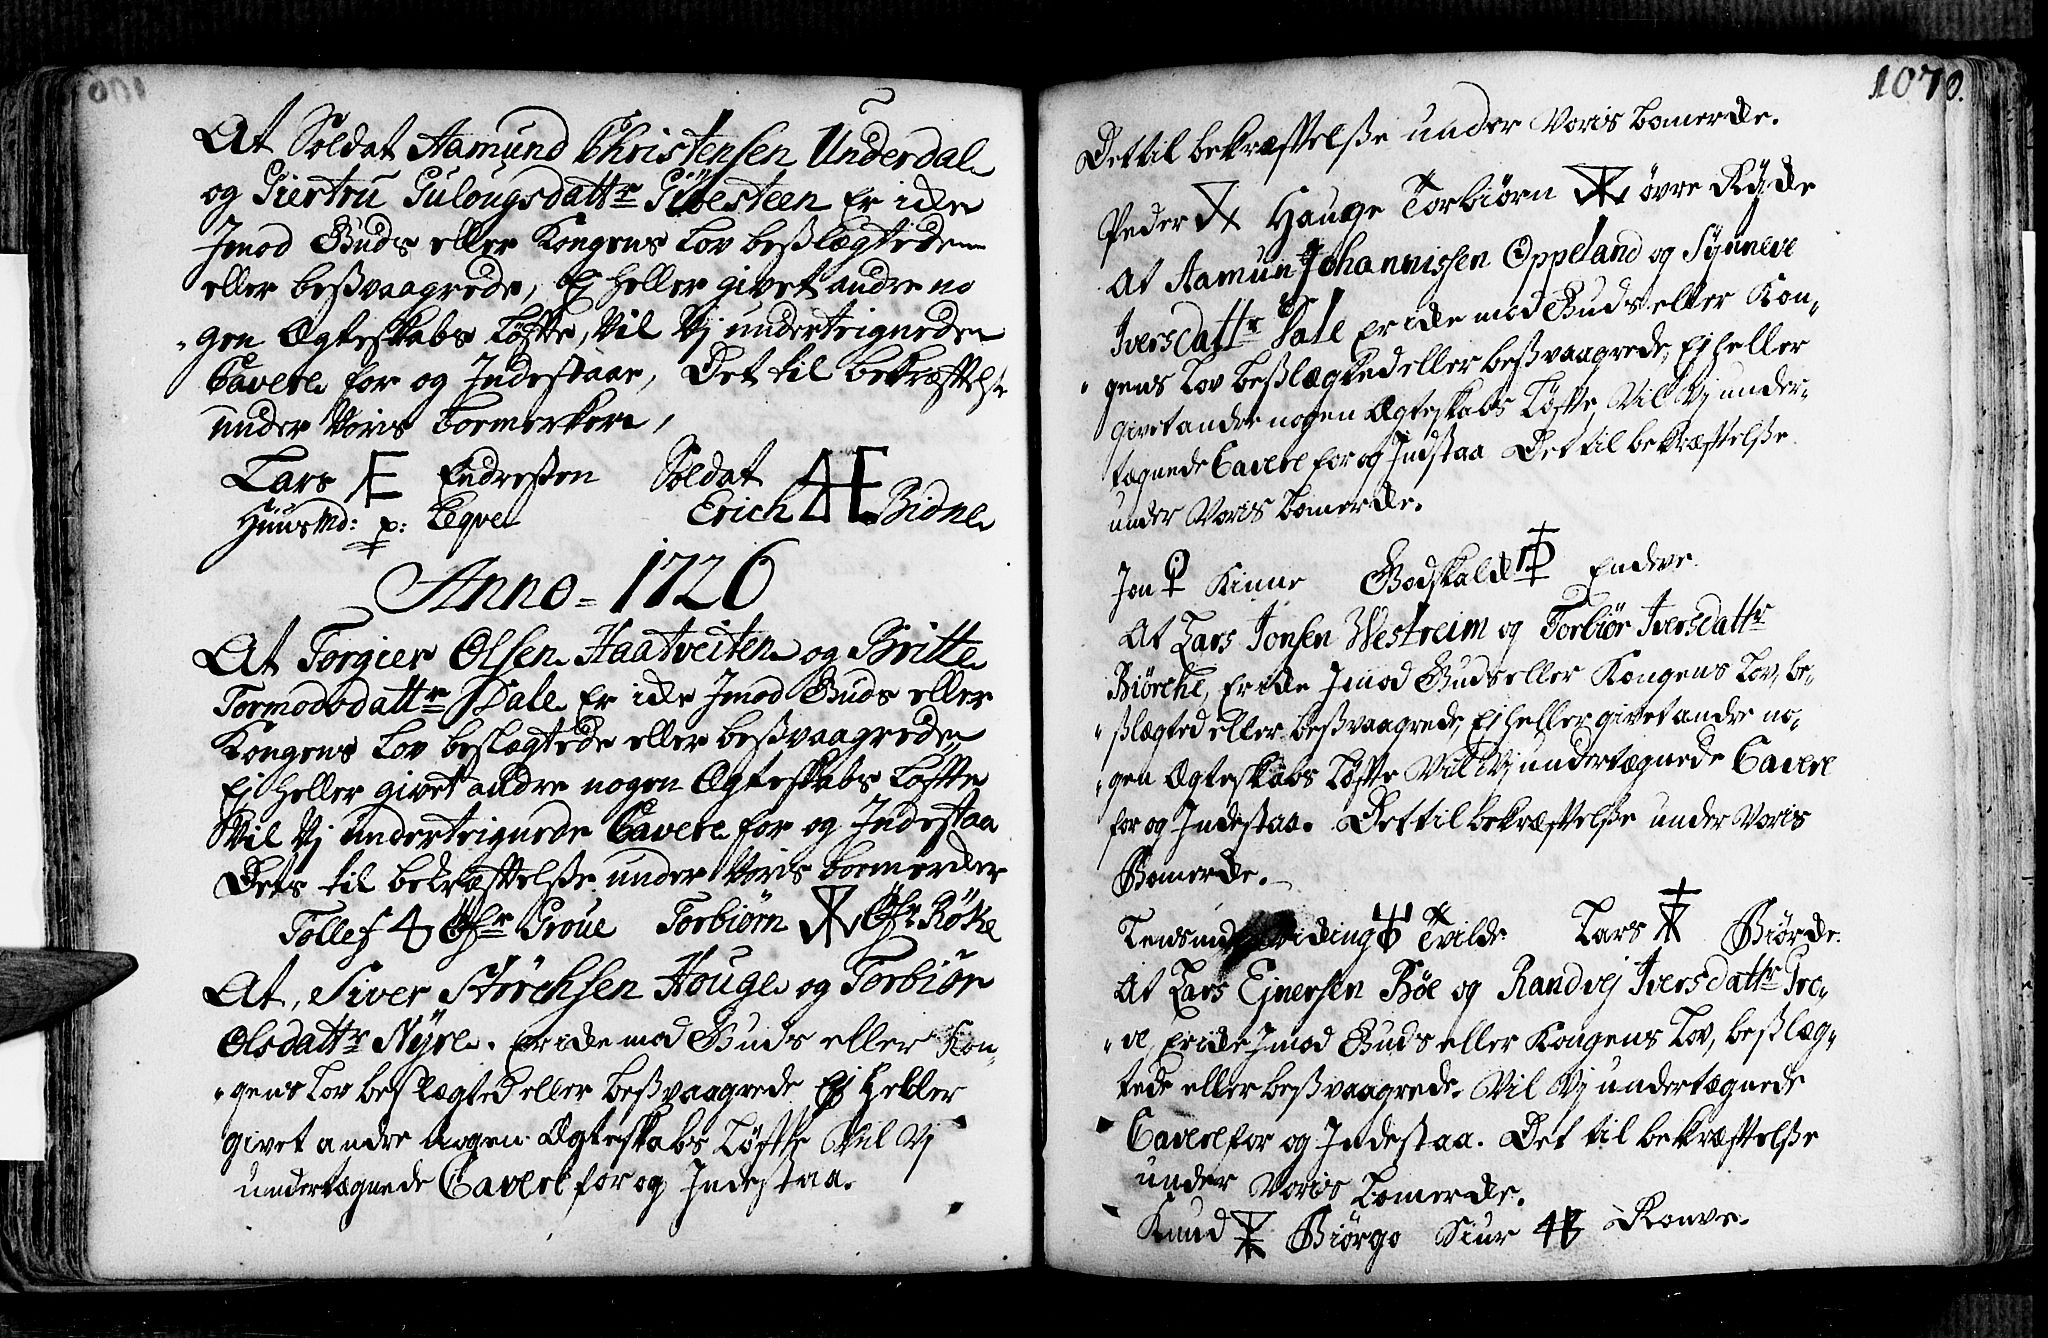 At Soldat Aamund Christensen Underdal
og Giertru Gulougsdattr Gibesteen Er icke
Jmod Guds eller Kongens Lov beßlægtiden
eller beßvaagrede, Ej heller givet andre no
gen Ægteskabs Løffte, Vil Vj underteignede
Cavere for og Jndestaar, Det til bekræfftelse
under Voris boemercker,
Lars Æ Endreßen Soldat
Huusmd: p: Leqve Erich Æ Bidne
Anno = 1726
At Torgier Olsen Haatveiten og Britte
Tormodsdattr Dale Er icke Jmod Guds eller
Kongens Lov beslægtede eller beßvaagrede,
Ej heller givet andre nogen Ægteskabs Løffte
Vil Vj underteignede Cavere for og Jndestaa
Dets til bekræfftelße under Voris boemercker
Tollef Øfr Grove Torbiørn Øfr Røke
At, Siver Størchsen Houge og Torbiør
Olsdattr Nyre. Er icke mod Guds eller Kon-
gens Lov beslægted eller beßvaagrede Ej heller
givet andre nogen Ægteskabs Løffte Vil Vj
undertægnede Cavere for og Jndestaa.
1070.
Det til bekræfftelße under Voris bomercke.
Peder Hauge Torbiørn øvre Røcke
At Aamun Johannissen Oppeland og Synneve
Iversdattr Sale Er icke mod Guds eller Kon-
gens Lov beßlægted eller beßvaagrede, Ej heller
givet andre nogen Ægteskabs Løffte, Vil Vj under-
tægnede Cavere for og Jndstaa Det til bekræfftelße
under Voris bomercke.
Jon Kinne Godskalck Endeve
At Lars Jonsen Westreim og Torbiør Iversdattr
Biørcke, Er icke Jmod Guds eller Kongens Lov, be-
ßlægted eller beßvaagrede, Ej heller givet andre no-
gen Ægteskabs Løffte Vil Vj undertægnede Cavere
for og Jndestaa. Det til bekræfftelße under Voris
Bomercke.
Lensmd Tvilde Lars Biørcke.
At Lars Ejnersen Bøe og Randvej Iversdattr Gro-
ve, Er icke Jmod Guds eller Kongens Lov, beßlæg-
tede eller beßvaagrede. Vil Vj undertægnede
Cavere for og Jndestaa. Det til bekræfftelße
under Voris bomercke.
Knud Giørgo Siur Ronve.